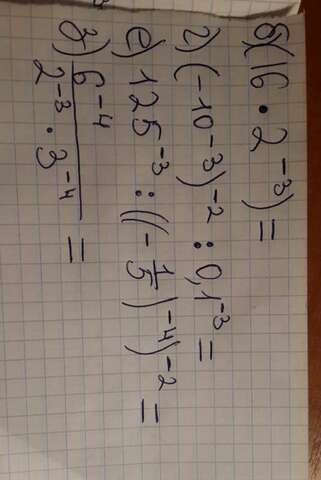 б) (16 · 2⁻³) =
г) (-10⁻³)⁻² : 0,1⁻³ =
е) 125⁻³ : ((-1/5)⁻⁴)⁻² =
з) 6⁻⁴ / (2⁻³ · 3⁻⁴) =